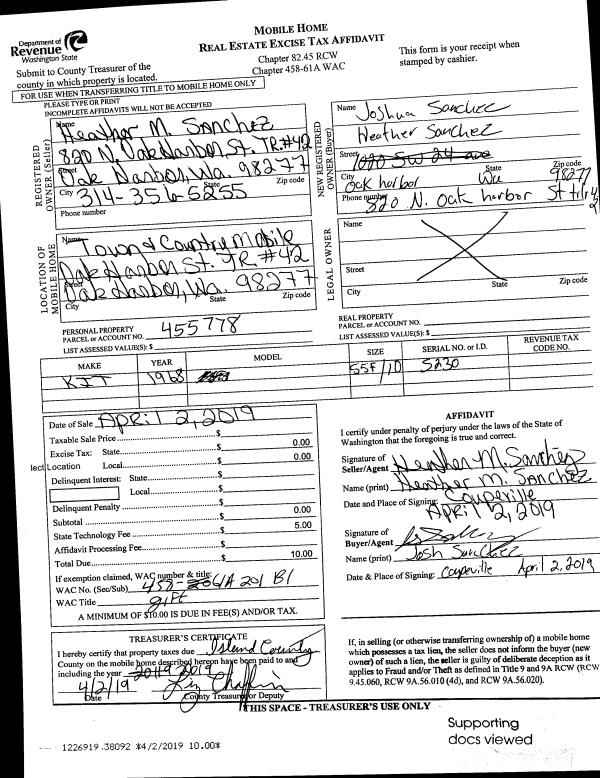 Department of
Revenue
Washington State
MOBILE HOME
REAL ESTATE EXCISE TAX AFFIDAVIT
Chapter 82.45 RCW
Chapter 458-61A WAC
This form is your receipt when
stamped by cashier.
Submit to County Treasurer of the
county in which property is located.
FOR USE WHEN TRANSFERRING TITLE TO MOBILE HOME ONLY
PLEASE TYPE OR PRINT
INCOMPLETE AFFIDAVITS WILL NOT BE ACCEPTED
REGISTERED
OWNER (Seller)
Name Heather M. Sanchez
820 N. Oak Harbor St. TR. #42
Street
Oak Harbor, Wa. 98277
City State Zip code
314-356-5255
Phone number
NEW REGISTERED
OWNER (Buyer)
Name Joshua Sanchez
Heather Sanchez
Street 1000 SW 24 ave
City Oak harbor State Wa Zip code 98277
Phone number 820 N. Oak harbor St tlr 42
LOCATION OF
MOBILE HOME
Name Town & Country Mobile
Oak Harbor St. TR #42
Street
Oak Harbor, Wa. 98277
City State Zip code
LEGAL OWNER
Name
Street
City State Zip code
PERSONAL PROPERTY
PARCEL or ACCOUNT NO. 455778
LIST ASSESSED VALUE(S): $
REAL PROPERTY
PARCEL or ACCOUNT NO.
LIST ASSESSED VALUE(S): $
MAKE YEAR MODEL SIZE SERIAL NO. or I.D. REVENUE TAX CODE NO.
KIT 1968 55F/10 5230
Date of Sale April 2, 2019
Taxable Sale Price $
Excise Tax: State $ 0.00
lect Location Local $ 0.00
Delinquent Interest: State $
Local $
Delinquent Penalty $ 0.00
Subtotal $ 5.00
State Technology Fee $
Affidavit Processing Fee $
Total Due $ 10.00
If exemption claimed, WAC number & title:
WAC No. (Sec/Sub) 458-61A 201 B1
WAC Title gift
A MINIMUM OF $10.00 IS DUE IN FEE(S) AND/OR TAX.
AFFIDAVIT
I certify under penalty of perjury under the laws of the State of
Washington that the foregoing is true and correct.
Signature of
Seller/Agent Heather M. Sanchez
Name (print) Heather M. Sanchez
Date and Place of Signing: Coupeville
April 2, 2019
Signature of
Buyer/Agent
Name (print) Josh Sanchez
Date & Place of Signing: Coupeville April 2, 2019
TREASURER'S CERTIFICATE
I hereby certify that property taxes due Island County
County on the mobile home described hereon have been paid to and
including the year 2019 2019
4/2/19 Liz Chaffin
Date County Treasurer or Deputy
If, in selling (or otherwise transferring ownership of) a mobile home
which possesses a tax lien, the seller does not inform the buyer (new
owner) of such a lien, the seller is guilty of deliberate deception as it
applies to Fraud and/or Theft as defined in Title 9 and 9A RCW (RCW
9.45.060, RCW 9A.56.010 (4d), and RCW 9A.56.020).
THIS SPACE - TREASURER'S USE ONLY
Supporting
docs viewed
1226919 38092 *4/2/2019 10.00*